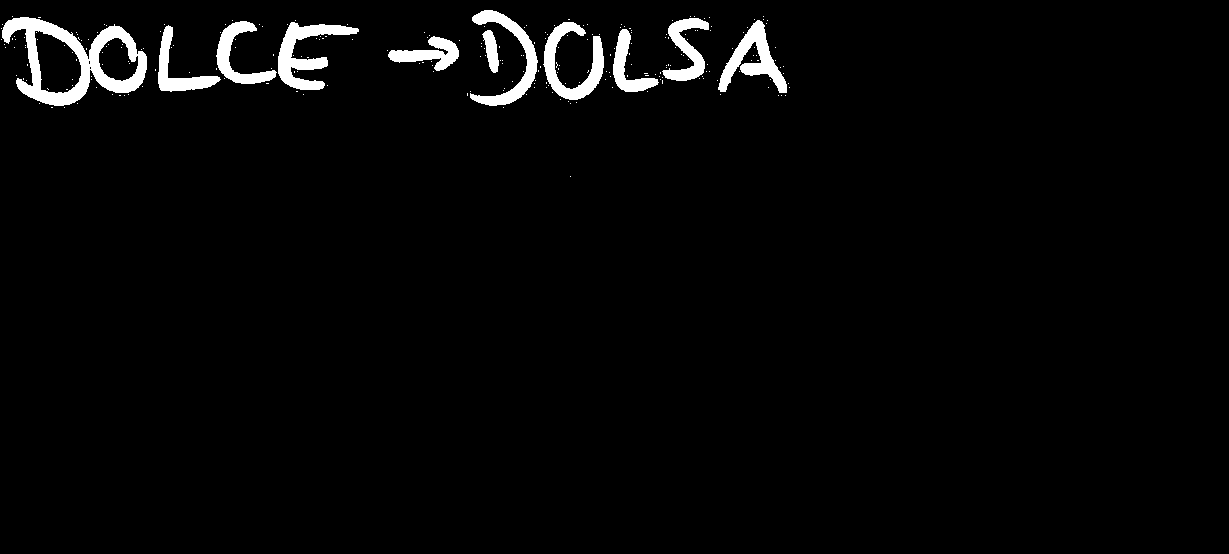 DOLCE → DOLSA